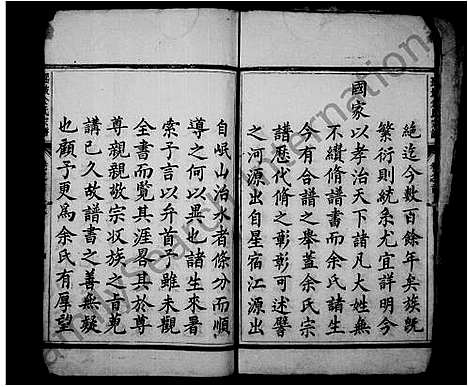 絶迄今數百餘年矣族既
繁衍則統系尤宜詳明今
國家以孝治天下諸凡大姓無
不纘脩譜書而余氏諸生
今有合譜之舉蓋余氏宗
譜歷代脩之彰彰可述譬
之河源出自星宿江源出
自岷山治水者條分而順
導之何以異也諸生來暑
索予言以弁首予雖未觀
全書而覽其涯畧其於尊
尊親親敬宗収族之肯菀
講已久故譜書之善無疑
也顧予更爲余氏有厚望